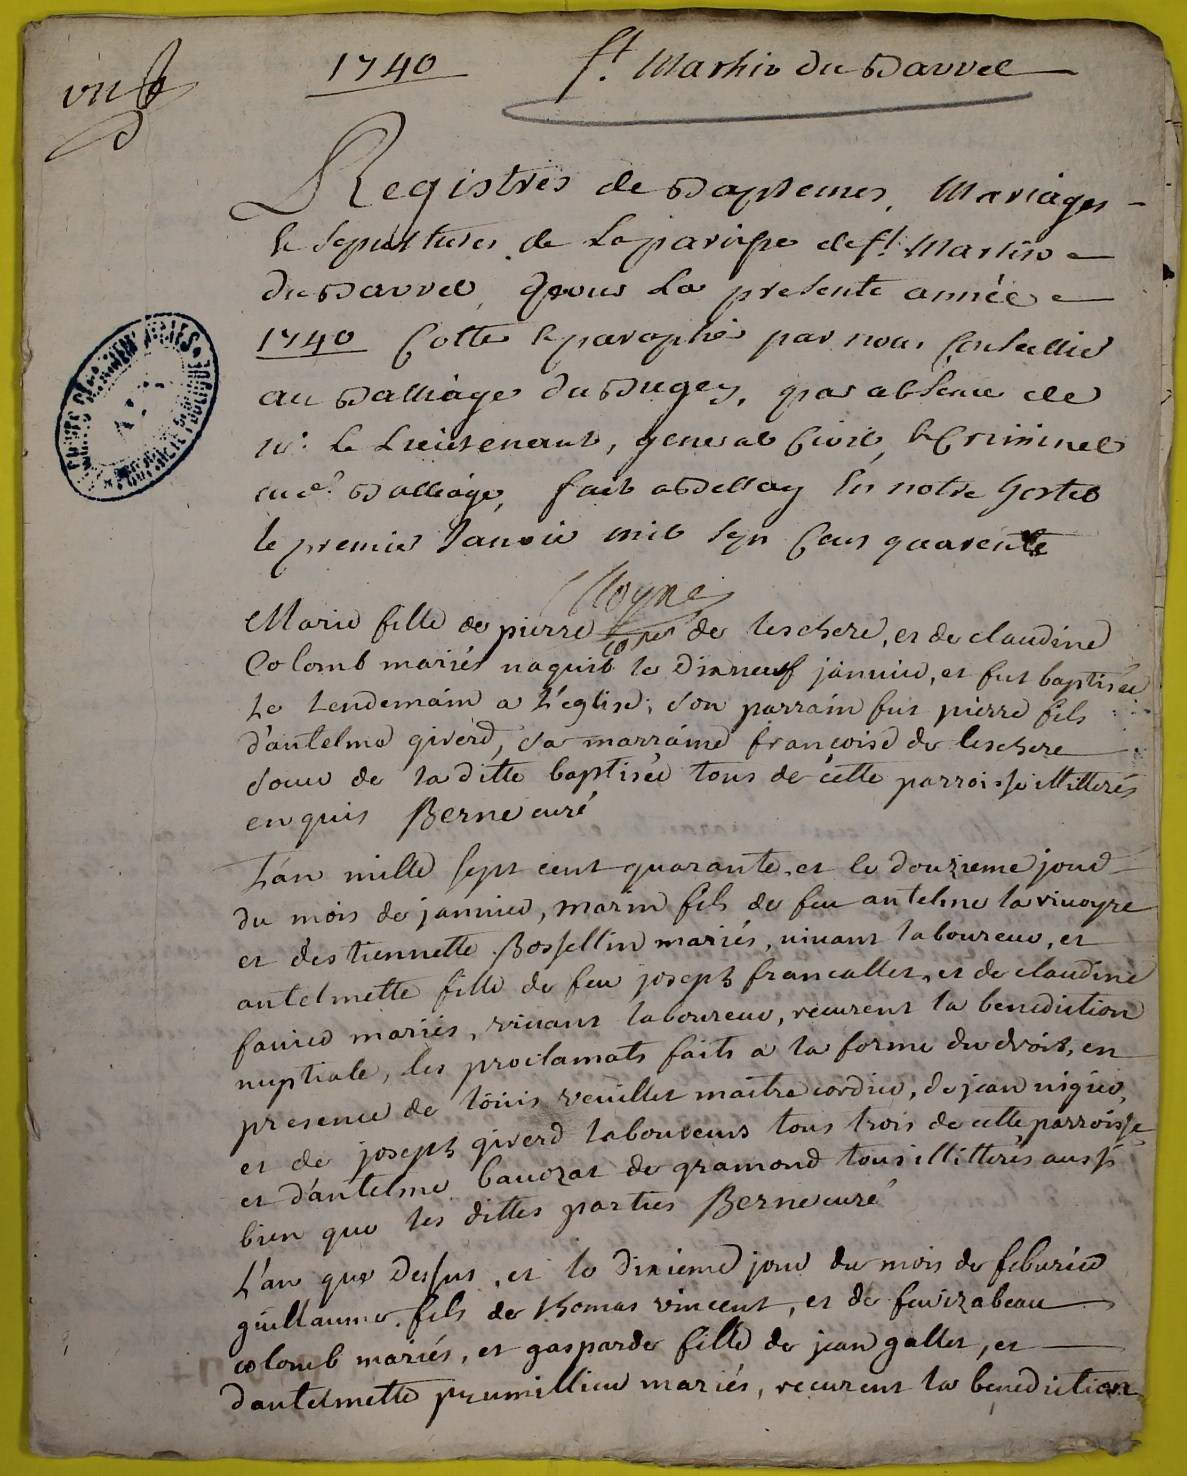 1740 St. Martin du Bavvel
Registres de Baptemes, Mariages
& Sepultures de La paroisse de St. Martin
du Bavvel, pour La presente année
1740 Cotté & paraphé par nous Conseillier
au Balliage du Bugey, par absence de
Mr. le Lieutenant, general Civil, & Criminel
aud. Balliage, fait a Bellay En notre hostel
le premier Janvier mil sept Cens quarente
Marie fille de pierre de leschere, et de claudine
Colomb mariés naquit le dixneuf janvier, et fut baptisée
le lendemain a l'église; son parrain fut pierre fils
d'antelme giverd, sa marraine françoise de leschere
soeur de la ditte baptisée tous de cette parroisse illitterés
enquis Berne curé
L'an mille sept cent quarante, et le douzieme jour
du mois de janvier, marin fils de feu antelme lavivoyre
et d'estiennette Bossellin mariés, vivant laboureur, et
antelmette fille de feu joseph francallet, et de claudine
favier mariés, vivant laboureur, recurent la benediction
nuptiale, les proclamats faits a la forme du droit, en
presence de loüis reuillet maitre cordier, de jean nigier,
et de joseph giverd laboureurs tous trois de cette parroisse
et d'antelme baudrat de gramond tous illitterés aussi
bien que les dittes parties Berne curé
L'an que dessus, et le dixieme jour du mois de feburier
guillaume fils de thomas vincent, et de feu izabeau
colomb mariés, et gasparde fille de jean gallet, et
d'antelmette prumillieu mariés, recurent la benediction